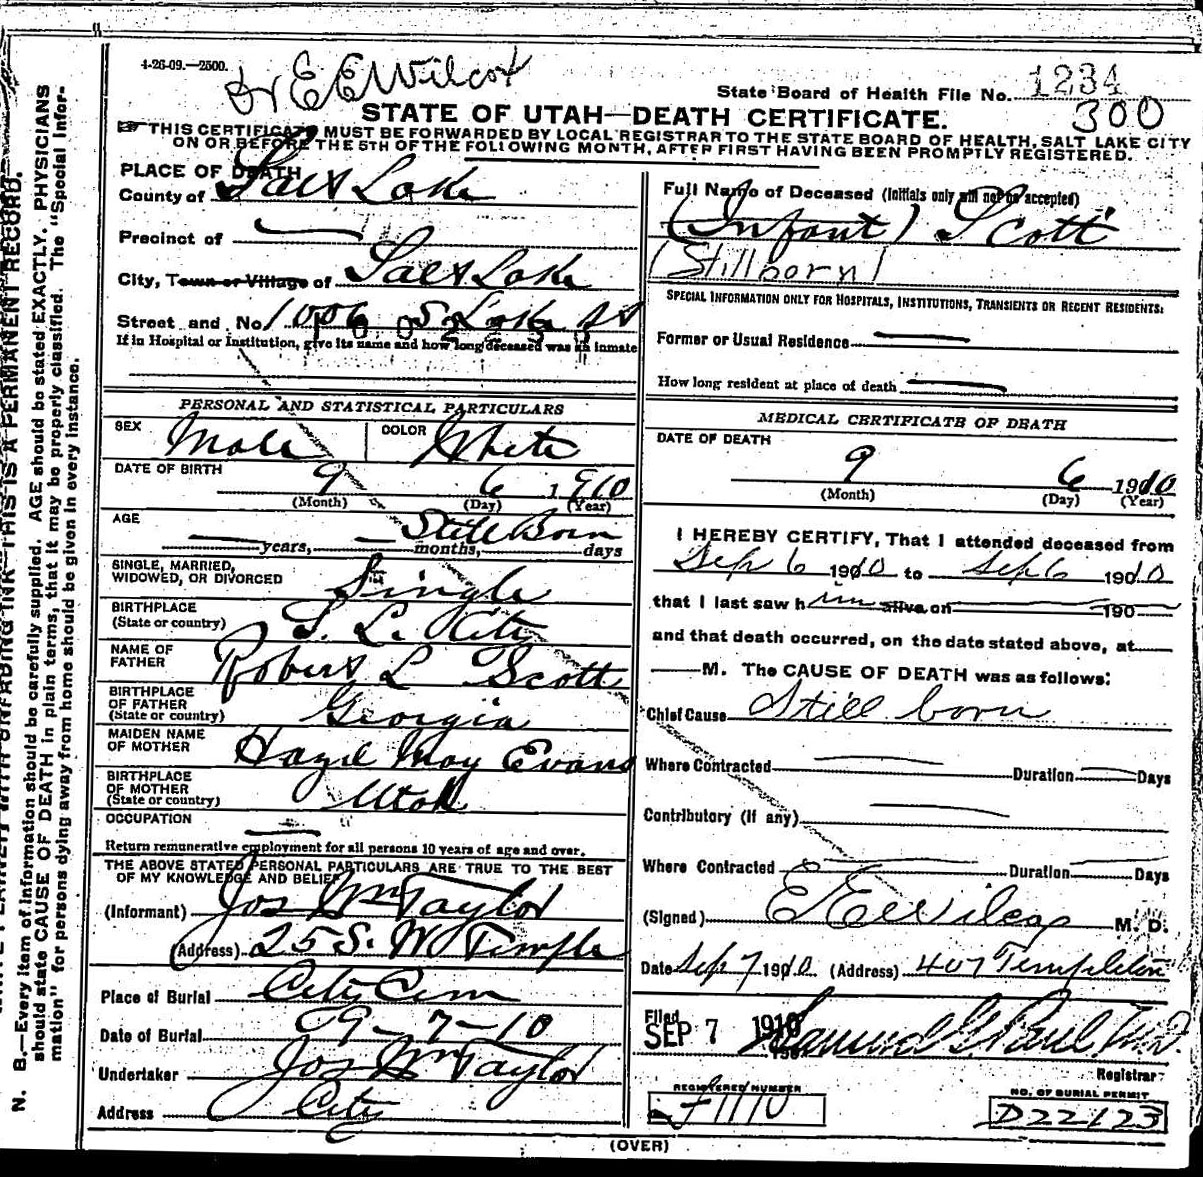 4-26-09.—2500.
Dr E E Wilcox
State Board of Health File No. 1234
300
STATE OF UTAH—DEATH CERTIFICATE.
☞ THIS CERTIFICATE MUST BE FORWARDED BY LOCAL REGISTRAR TO THE STATE BOARD OF HEALTH, SALT LAKE CITY
ON OR BEFORE THE 5TH OF THE FOLLOWING MONTH, AFTER FIRST HAVING BEEN PROMPTLY REGISTERED.
PLACE OF DEATH
County of Salt Lake
Precinct of
City, Town or Village of Salt Lake
Street and No. 1006 S Lake St
If in Hospital or Institution, give its name and how long deceased was an inmate
Full Name of Deceased (Initials only will not be accepted)
(Infant) Scott
(Stillborn)
SPECIAL INFORMATION ONLY FOR HOSPITALS, INSTITUTIONS, TRANSIENTS OR RECENT RESIDENTS:
Former or Usual Residence
How long resident at place of death
PERSONAL AND STATISTICAL PARTICULARS
SEX Male COLOR White
DATE OF BIRTH 9 6 1910
(Month) (Day) (Year)
AGE Still Born
years, months, days
SINGLE, MARRIED,
WIDOWED, OR DIVORCED Single
BIRTHPLACE
(State or country) S. L. City
NAME OF
FATHER Robert L Scott
BIRTHPLACE
OF FATHER
(State or country) Georgia
MAIDEN NAME
OF MOTHER Hazel May Evans
BIRTHPLACE
OF MOTHER
(State or country) Utah
OCCUPATION
Return remunerative employment for all persons 10 years of age and over.
THE ABOVE STATED PERSONAL PARTICULARS ARE TRUE TO THE BEST
OF MY KNOWLEDGE AND BELIEF
(Informant) Jos Wm Taylor
(Address) 25 S. W Temple
Place of Burial City Cem
Date of Burial 9-7-10
Undertaker Jos Wm Taylor
Address City
MEDICAL CERTIFICATE OF DEATH
DATE OF DEATH
9 6 1910
(Month) (Day) (Year)
I HEREBY CERTIFY, That I attended deceased from
Sep 6 1910 to Sep 6 1910
that I last saw h im alive on 190
and that death occurred, on the date stated above, at
M. The CAUSE OF DEATH was as follows:
Chief Cause Still born
Where Contracted Duration Days
Contributory (If any)
Where Contracted Duration Days
(Signed) E E Wilcox M. D.
Date Sep 7 1910 (Address) 407 Templeton
Filed
SEP 7 1910 Samuel G. Paul M.D.
Registrar
REGISTERED NUMBER
NO. OF BURIAL PERMIT
D22123
(OVER)
N. B.—Every item of information should be carefully supplied. AGE should be stated EXACTLY. PHYSICIANS
should state CAUSE OF DEATH in plain terms, that it may be properly classified. The "Special Infor-
mation" for persons dying away from home should be given in every instance.
WRITE PLAINLY WITH UNFADING INK—THIS IS A PERMANENT RECORD.